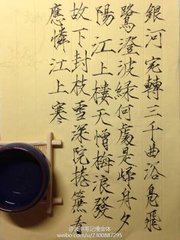 銀河宛轉三千曲浴鳧飛
鷺澄波綠何處是歸舟夕
陽江上樓天憎梅浪發
故下封枝雪深院捲簾看
應憐江上寒